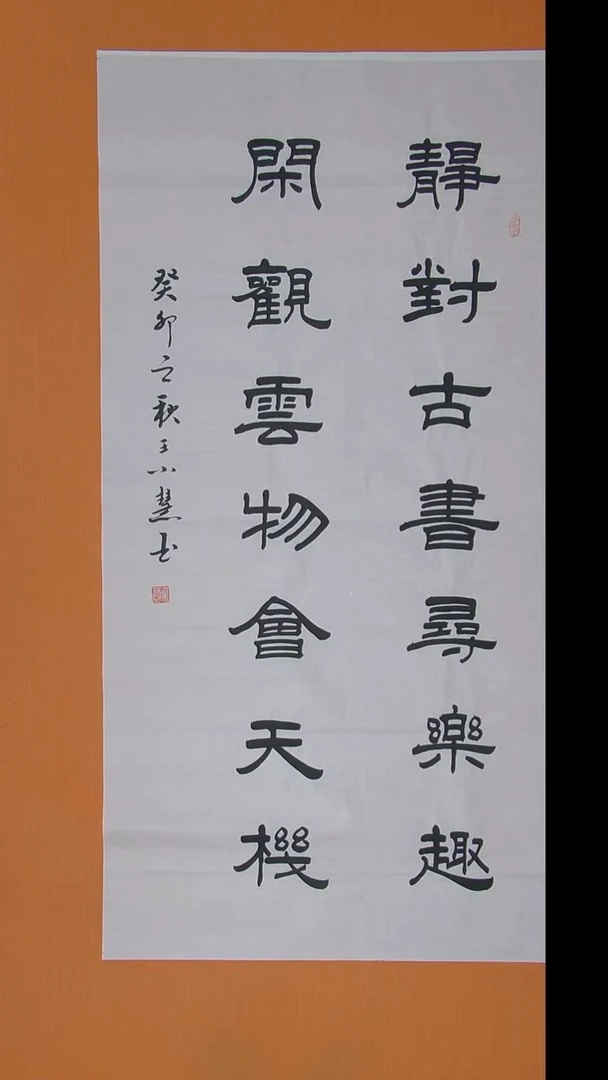 靜對古書尋樂趣
閑觀雲物會天機
癸卯之秋王小慧书